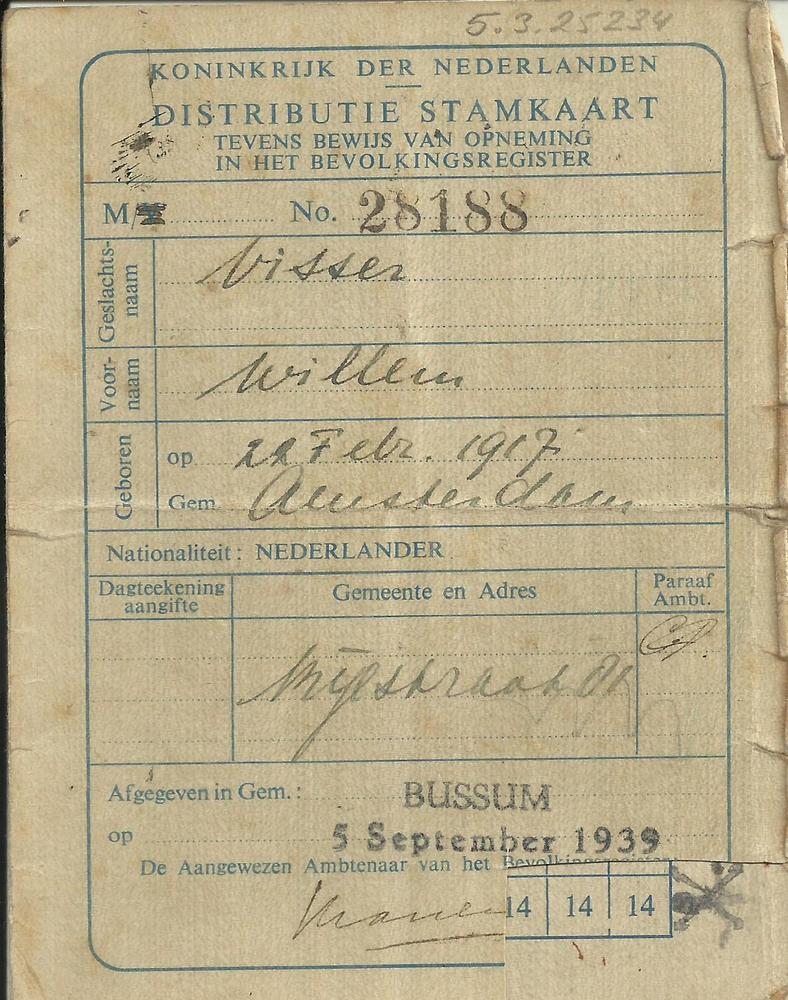 5.3.25234
KONINKRIJK DER NEDERLANDEN
DISTRIBUTIE STAMKAART
TEVENS BEWIJS VAN OPNEMING
IN HET BEVOLKINGSREGISTER
M/ No. 28188
Geslachts-
naam
Visser
Voor-
naam
Willem
Geboren
op 22 Febr. 1917
Gem. Amsterdam
Nationaliteit: NEDERLANDER
Dagteekening
aangifte
Gemeente en Adres
Paraaf
Ambt.
Afgegeven in Gem.: BUSSUM
op 5 September 1939
De Aangewezen Ambtenaar van het Bevolkingsregister
14 14 14